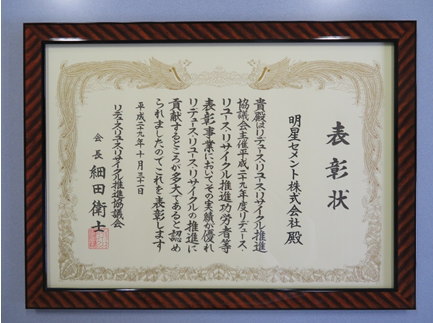 表彰状
明星セメント株式会社殿
貴殿はリデュース・リユース・リサイクル推進
協議会主催平成二十九年度リデュース・
リユース・リサイクル推進功労者等
表彰事業においてその実績が優れ
リデュース・リユース・リサイクルの推進に
貢献するところが多大であると認め
られましたのでこれを表彰します
平成二十九年十月三十一日
リデュース・リユース・リサイクル推進協議会
会長 細田衛士